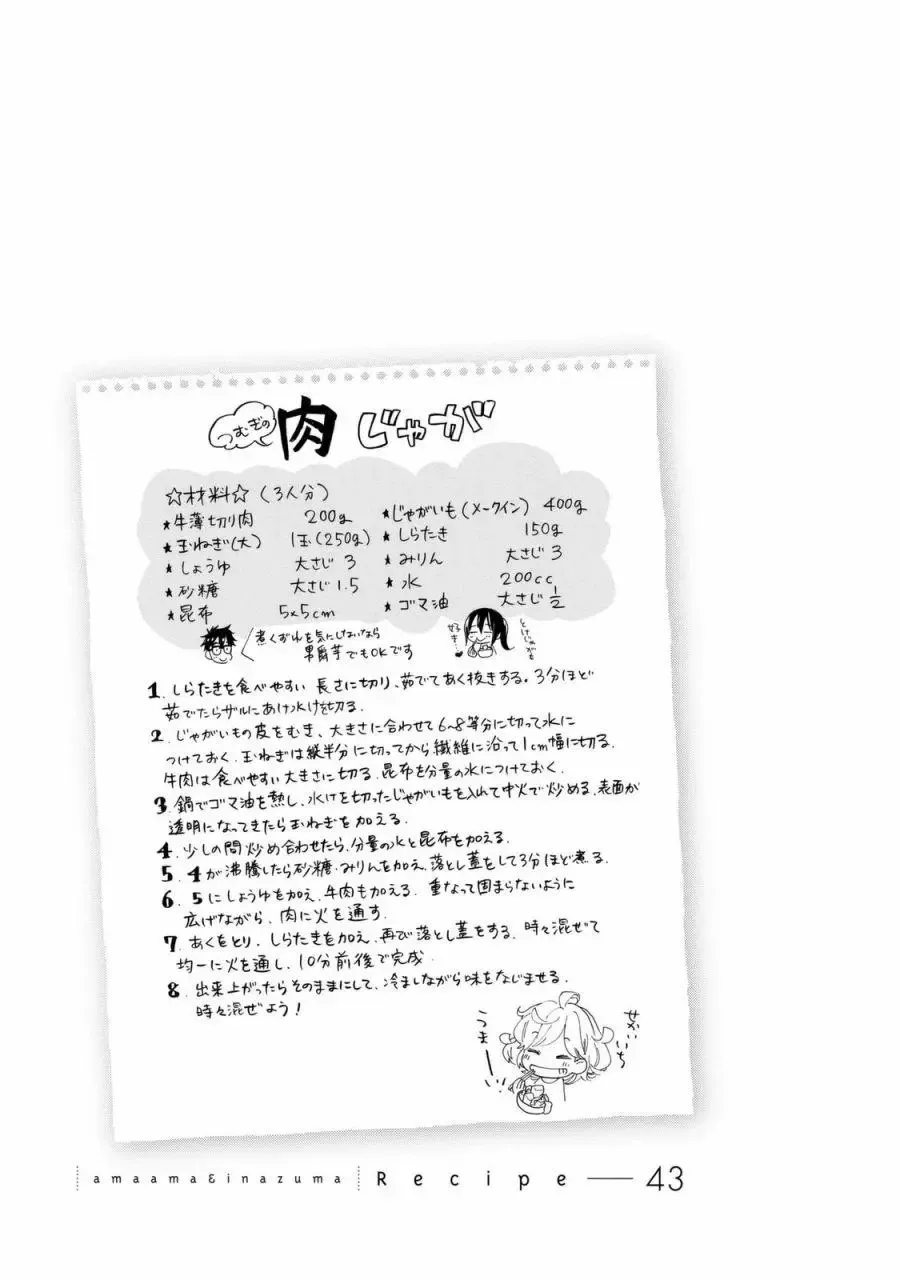 つむぎの 肉じゃが
☆材料☆（3人分）
★牛薄切り肉 200g
★玉ねぎ(大) 1玉(250g)
★しょうゆ 大さじ 3
★砂糖 大さじ 1.5
★昆布 5×5cm
★じゃがいも(メークイン) 400g
★しらたき 150g
★みりん 大さじ 3
★水 200cc
★ゴマ油 大さじ 1/2
煮くずれを気にしないなら
男爵芋でもOKです
とけじゃがも
好き♥
1. しらたきを食べやすい長さに切り、茹でてあく抜きする。3分ほど
茹でたらザルにあけ水けを切る。
2. じゃがいもの皮をむき、大きさに合わせて6~8等分に切って水に
つけておく。玉ねぎは縦半分に切ってから繊維に沿って1cm幅に切る。
牛肉は食べやすい大きさに切る。昆布を分量の水につけておく。
3. 鍋でゴマ油を熱し、水けを切ったじゃがいもを入れて中火で炒める。表面が
透明になってきたら玉ねぎを加える。
4. 少しの間炒め合わせたら、分量の水と昆布を加える。
5. 4が沸騰したら砂糖・みりんを加え、落とし蓋をして3分ほど煮る。
6. 5にしょうゆを加え、牛肉も加える。重なって固まらないように
広げながら、肉に火を通す。
7. あくをとり、しらたきを加え、再び落とし蓋をする。時々混ぜて
均一に火を通し、10分前後で完成。
8. 出来上がったらそのままにして、冷ましながら味をなじませる。
時々混ぜよう！
せかいいち
うまーい!
amaama&inazuma Recipe — 43